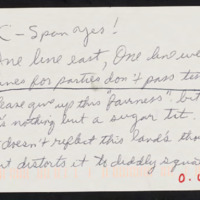 C-Span yes!
One line east, One line we
ines for parties don't pass tes
lease give up this "fairness", but
's nothing but a sugar tit.
doesn't reflect this land's tho
t distorts it to diddly squat
O.